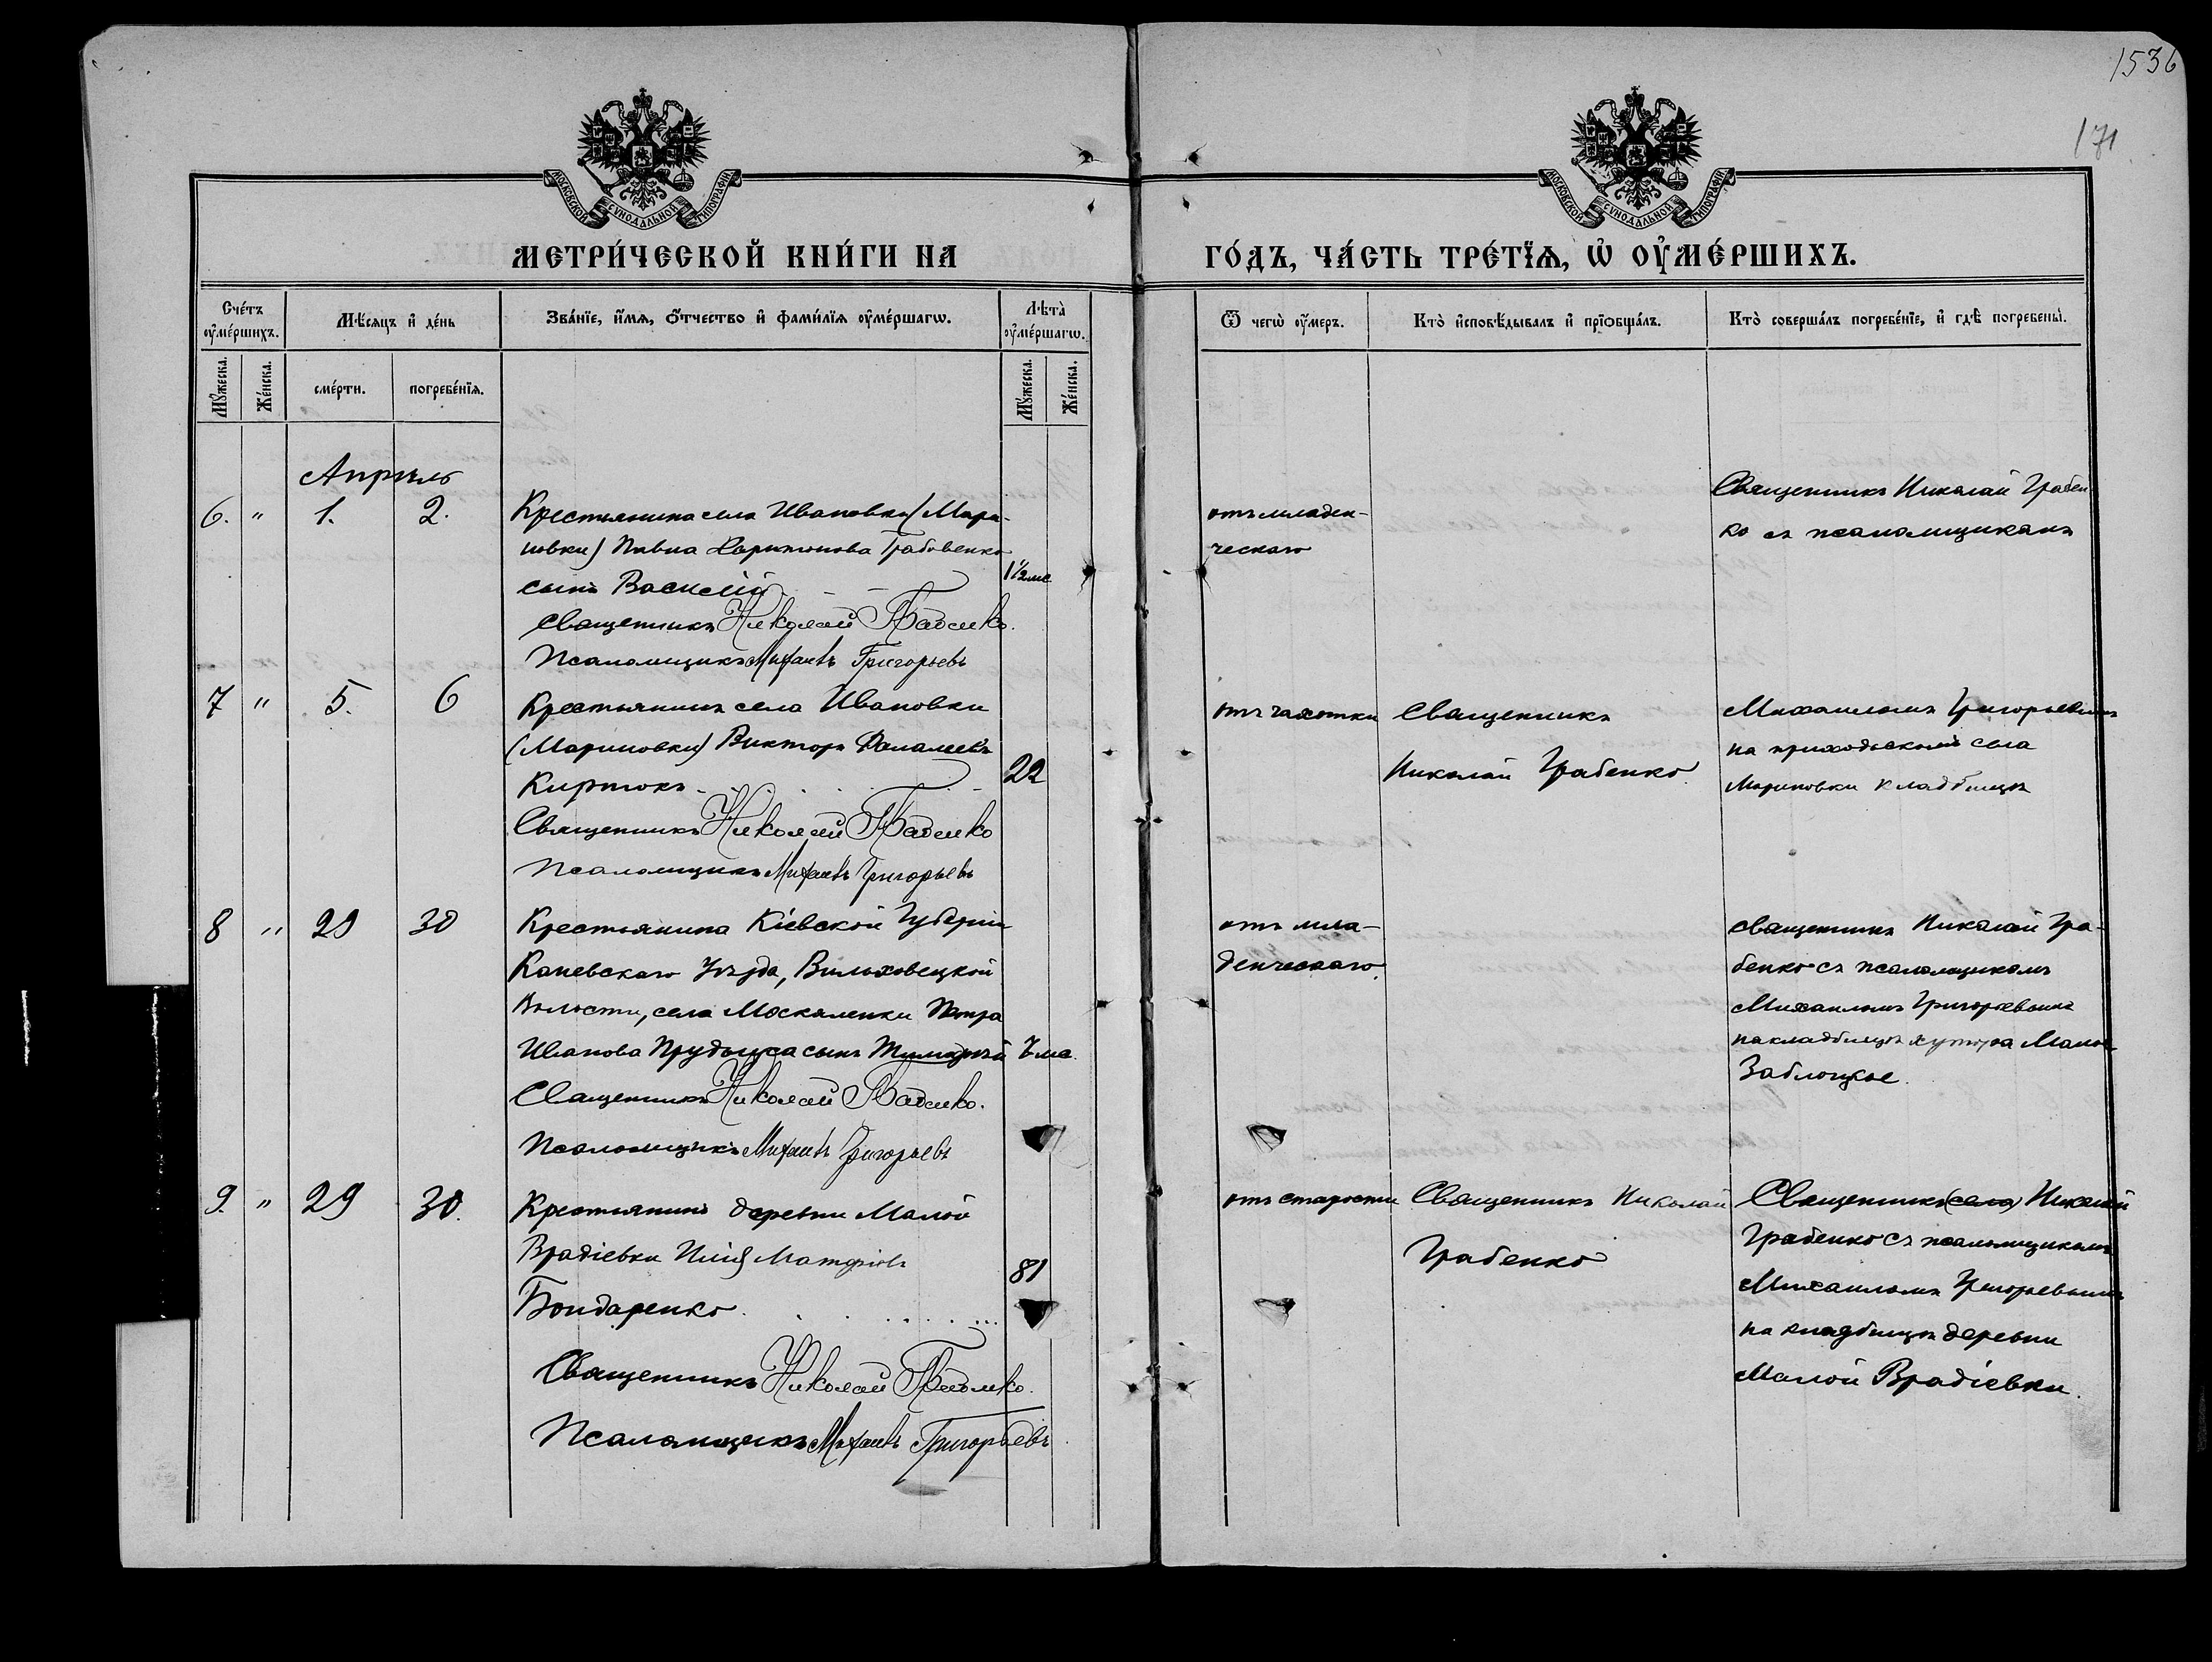 1536
171
МОСКОВСКОЙ СѴНОДАЛЬНОЙ ТИПОГРАФІИ
МОСКОВСКОЙ СѴНОДАЛЬНОЙ ТИПОГРАФІИ
МЕТРИ́ЧЕСКОЙ КНИ́ГИ НА
ГО́ДЪ, ЧА́СТЬ ТРЕ́ТЇѦ, Ѡ҆ ОУ҆МЕ́РШИХЪ.
Сче́тъ оу҆ме́ршихъ.
Мѣ́сяцъ и҆ де́нь
Зва́нїе, и҆́мѧ, ѻ҆́тчество и҆ фами́лїѧ оу҆ме́ршагѡ.
Лѣта̀ оу҆ме́ршагѡ.
Ѿ чегѡ̀ оу҆́меръ.
Кто̀ и҆сповѣ́дывалъ и҆ прїѻбща́лъ.
Кто̀ соверша́лъ погребе́нїе, и҆ гдѣ̀ погребены̀.
Му́жеска.
Же́нска.
сме́рти.
погребе́нїѧ.
Му́жеска.
Же́нска.
Апрѣль
6. " 1. 2.
Крестьянина села Ивановки (Мари-
новки) Павла Харитонова Грабовенко
сынъ Василій
1½ мс
Священникъ Николай Грабенко.
Псаломщикъ Михаилъ Григорьевъ
отъ младен-
ческаго
Священникъ Николай Грабен
ко съ псаломщикомъ
7 " 5. 6
Крестьянинъ села Ивановки
(Мариновки) Викторъ
Киртокъ
22
Священникъ Николай Грабенко
Псаломщикъ Михаилъ Григорьевъ
отъ чахотки
Священникъ
Николай Грабенко
Михаиломъ Григорьевымъ
на приходскомъ села
Мариновки кладбищѣ
8 " 29 30
Крестьянина Кіевской Губерніи
Каневскаго Уѣзда, Вильховецкой
Волости, села Москаленки Петра
Иванова Прудыуса сынъ Тимофѣй
мс.
Священникъ Николай Грабенко.
Псаломщикъ Михаилъ Григорьевъ
отъ мла-
денческаго.
Священникъ Николай Гра-
бенко съ псаломщикомъ
Михаиломъ Григорьевымъ
на кладбищѣ хутора Мало-
Заблоцкое.
9. " 29 30.
Крестьянинъ деревни Малой
Врадіевки Илія
Бондаренко
81
Священникъ Николай Грабенко.
Псаломщикъ Михаилъ Григорьевъ
отъ старости
Священникъ Николай
Грабенко
Священникъ (села) Николай
Грабенко съ псаломщикомъ
Михаиломъ Григорьевымъ
на кладбищѣ деревни
Малой Врадіевки.